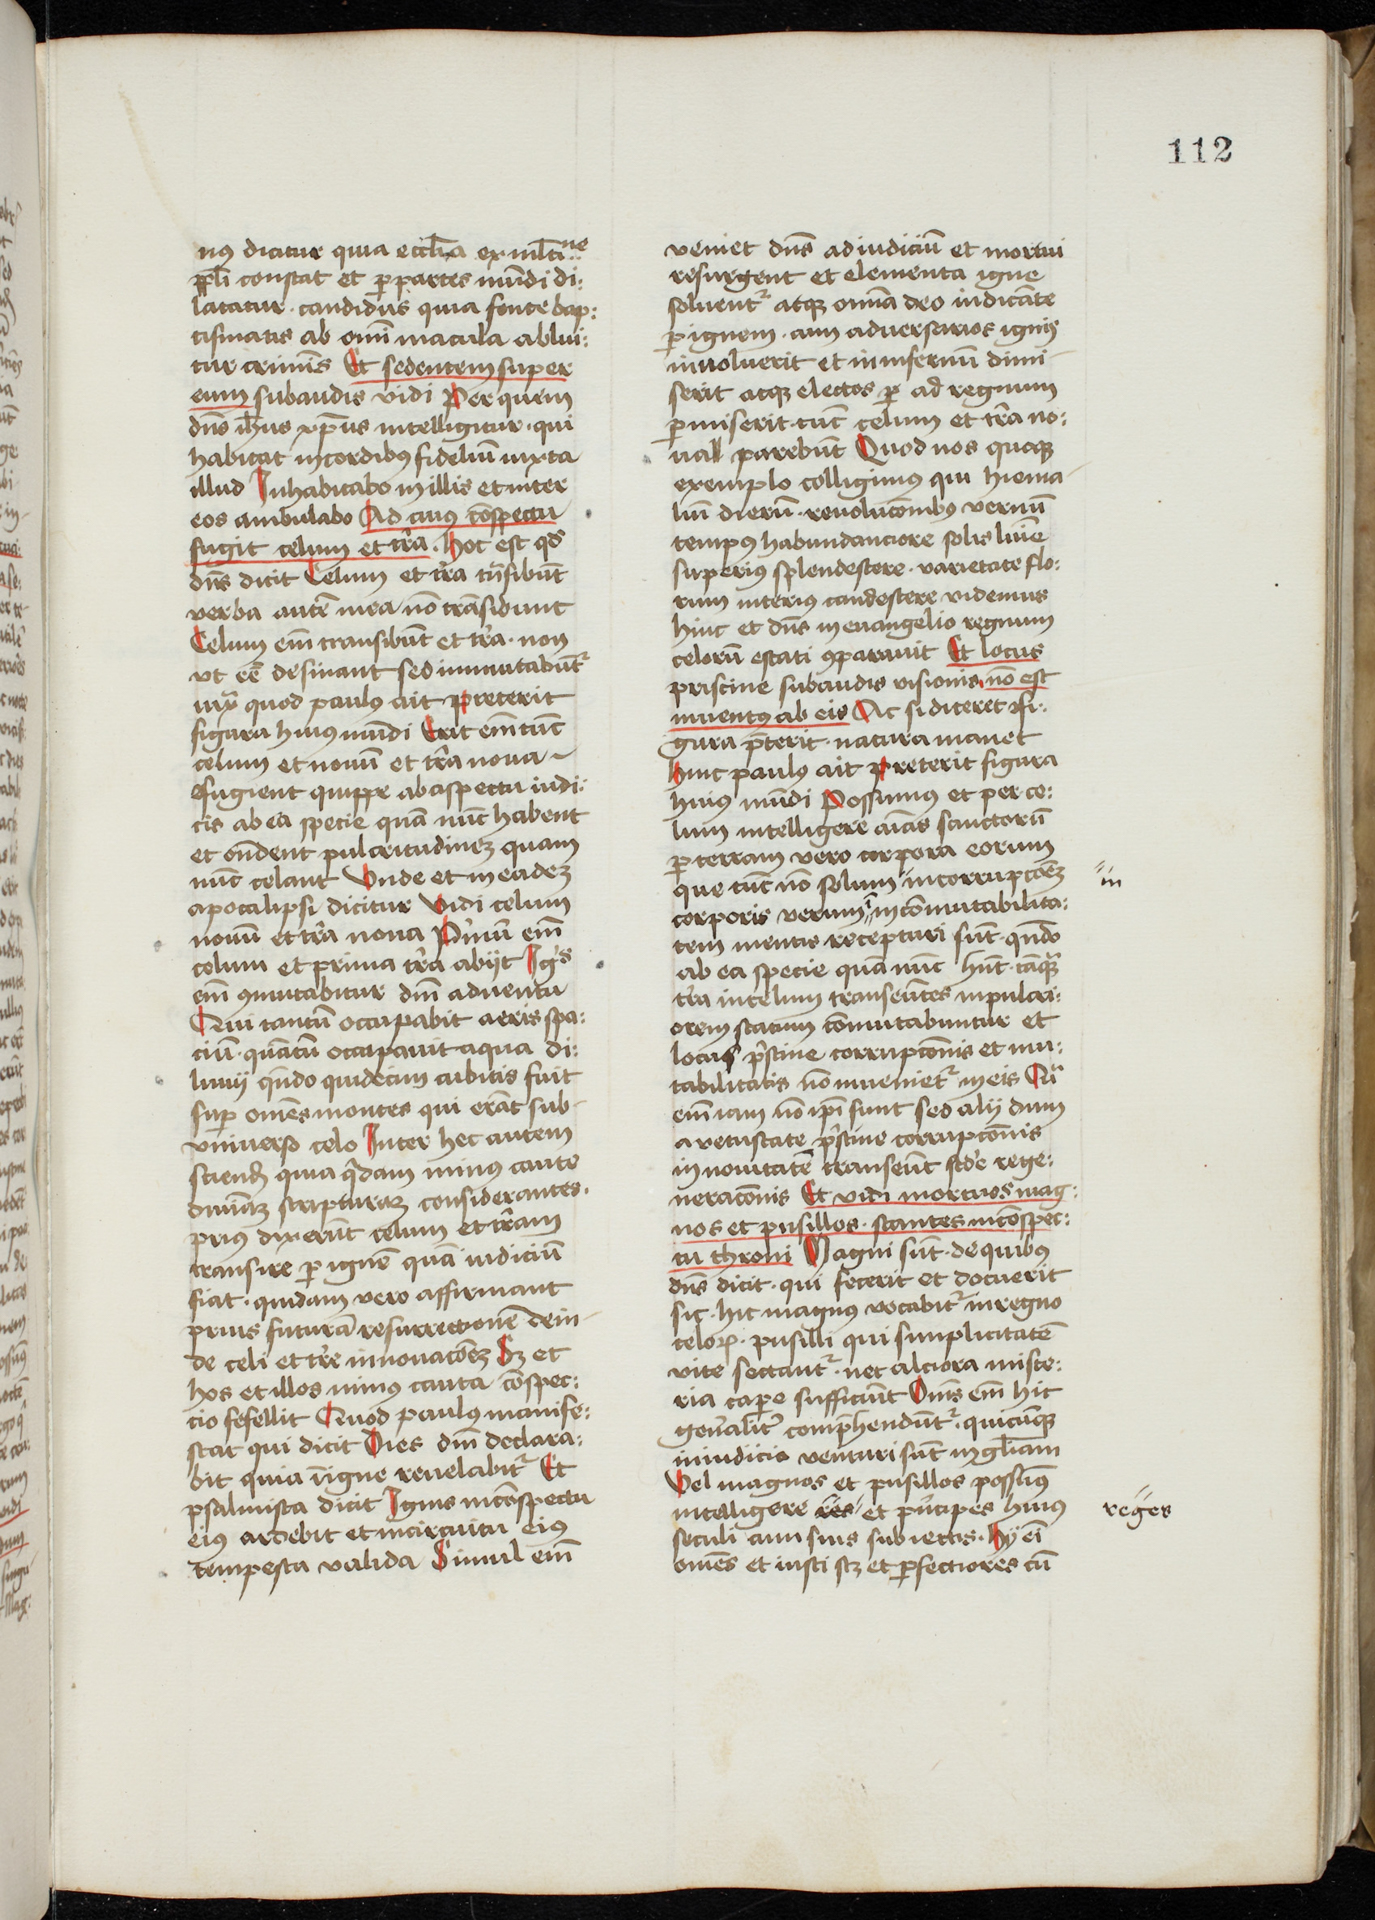 112
nꝰ dicitur quia eccl̄ia ex ml̄titu͞e
ppl̄i constat et ꝑ partes mūdi di:
latatur · candidus quia fonte bap:
tismatis ab om̄i macula ablui:
tur criminis Et sedentem super
eum subaudis vidi Per quem
dn̄s ih̄us xp̄us intelligitur · qui
habitat in cordibꝰ fideliū iuxta
illud Inhabitabo in illis et inter
eos ambulabo Ad cuiꝰ cōspectu
fugit celum et tr̄a · Hoc est qd̄
dn̄s dicit Celum et tr̄a trāsibūt
verba autē mea nō trāsibunt
Celum em̄ transibūt et tr̄a · non
vt ēē desinant sed inmutabūtᷣ
iux̄ quod paulꝰ ait Preterit
figura huiꝰ mūdi Erit em̄ tūc
celum et nouū et tr̄a noua ~
effugient quippe ab aspectu iudi:
cis ab ea specie quā nūc habent
et on̄dent pulcritudineꝫ quam
nūc celant Vnde et in eadeꝫ
apocalipsi dicitur Vidi celum
nouū et tr̄a noua Prīmū em̄
celum et prima tr̄a abijt Ig̅s
em̄ ꝯmutabitur dn̄i aduentu
Qui tantū occupabit aeris spa:
ciū · quātū occupauit aqua di:
luuij qn̄do quidecim cubitis fuit
suꝑ omēs montes qui erāt sub
vniuerso celo Inter hec autem
sciend̄ quia qͥdam minꝰ caute
diuināꝫ scripturaꝫ considerantes ·
priꝰ dixerūt celum et tr̄am
transire ꝑ ignē quā iudiciū
fiat · quidam vero affirmant
prius futurā resurrectionē dein
de celi et tr̄e innouacōeꝫ Sꝫ et
hos et illos minꝰ cauta cōspec:
cio fefellit Quod paulꝰ manife:
stat qui dicit Dies dn̄i declara:
bit quia ī igne reuelabitᷣ Et
psalmista dicit Ignis in cōspectu
eiꝰ ardebit et in circuitu eiꝰ
tempesta valida Simul em̄
veniet dn̄s ad iudiciū et mortui
resurgent et elementa igne
soluentᷣ atqꝫ om̄ia deo iudicāte
ꝑ ignem · cum aduersarios ignis
inuoluerit et in infernū dimi
serit atqꝫ electos ꝑ ad regnum
ꝑmiserit · tūc celum et tr̄a no:
ua parebūt Quod nos quoqꝫ
exemplo colligimus qui hiema
liū dierū · reuolucōnibꝰ vernū
tempꝰ habundanciore solis lumīe
superiꝰ splendescere · varietate flo:
rum interiꝰ candescere videmus
hinc et dn̄s in euangelio regnum
celorū estati ꝯparauit Et locus
priscine subaudis visionis nō est
inuentꝰ ab eis Ac si diceret · fi:
gura p̄terit · natura manet
Hinc paulꝰ ait Preterit figura
huiꝰ mūdi Possumꝰ et per ce:
lum intelligere aīas sanctorū
ꝑ terram vero corpora eorum
que tūc nō solum incorrupcōeꝫ
in
corporis verum in cōmutabilita:
tem mentis recepturi sūt · qn̄do
ab ea specie quā nūc hn̄t · tāqᷓ
tr̄a in celum transeūtes in pulcri:
orem statum cōmutabuntur et
locus p̄stine corrupcōnis et mu:
tabilitatis nō inuenietᷣ in eis Quͥ
em̄ iam nō ip̄i sunt sed alij dum
a vetustate p̄stine corrupcōnis
in nouitatē transeūt scd̄e rege:
neracōnis Et vidi mortuos mag:
nos et pusillos · stantes in cōspec:
tu throni Magni sūt · de quibꝰ
dn̄s dicit · qui fecerit et docuerit
sic · hic magnꝰ vocabitᷣ in regno
celoꝝ · pusilli qui simplicitatē
vite sectantᷣ · nec alciora miste:
ria caꝑe sufficiūt Om̄s em̄ hic
gen̄alitᷣ comp̄hendūtᷣ · quicūqꝫ
in iudicio venturi sūt in gl̄iam
Vel magnos et pusillos possumꝰ
intelligere res et prīcipes huiꝰ
reges
seculi cum suis subiectis · Hij em̄
omēs et iusti scꝫ et ꝑfectiores cū